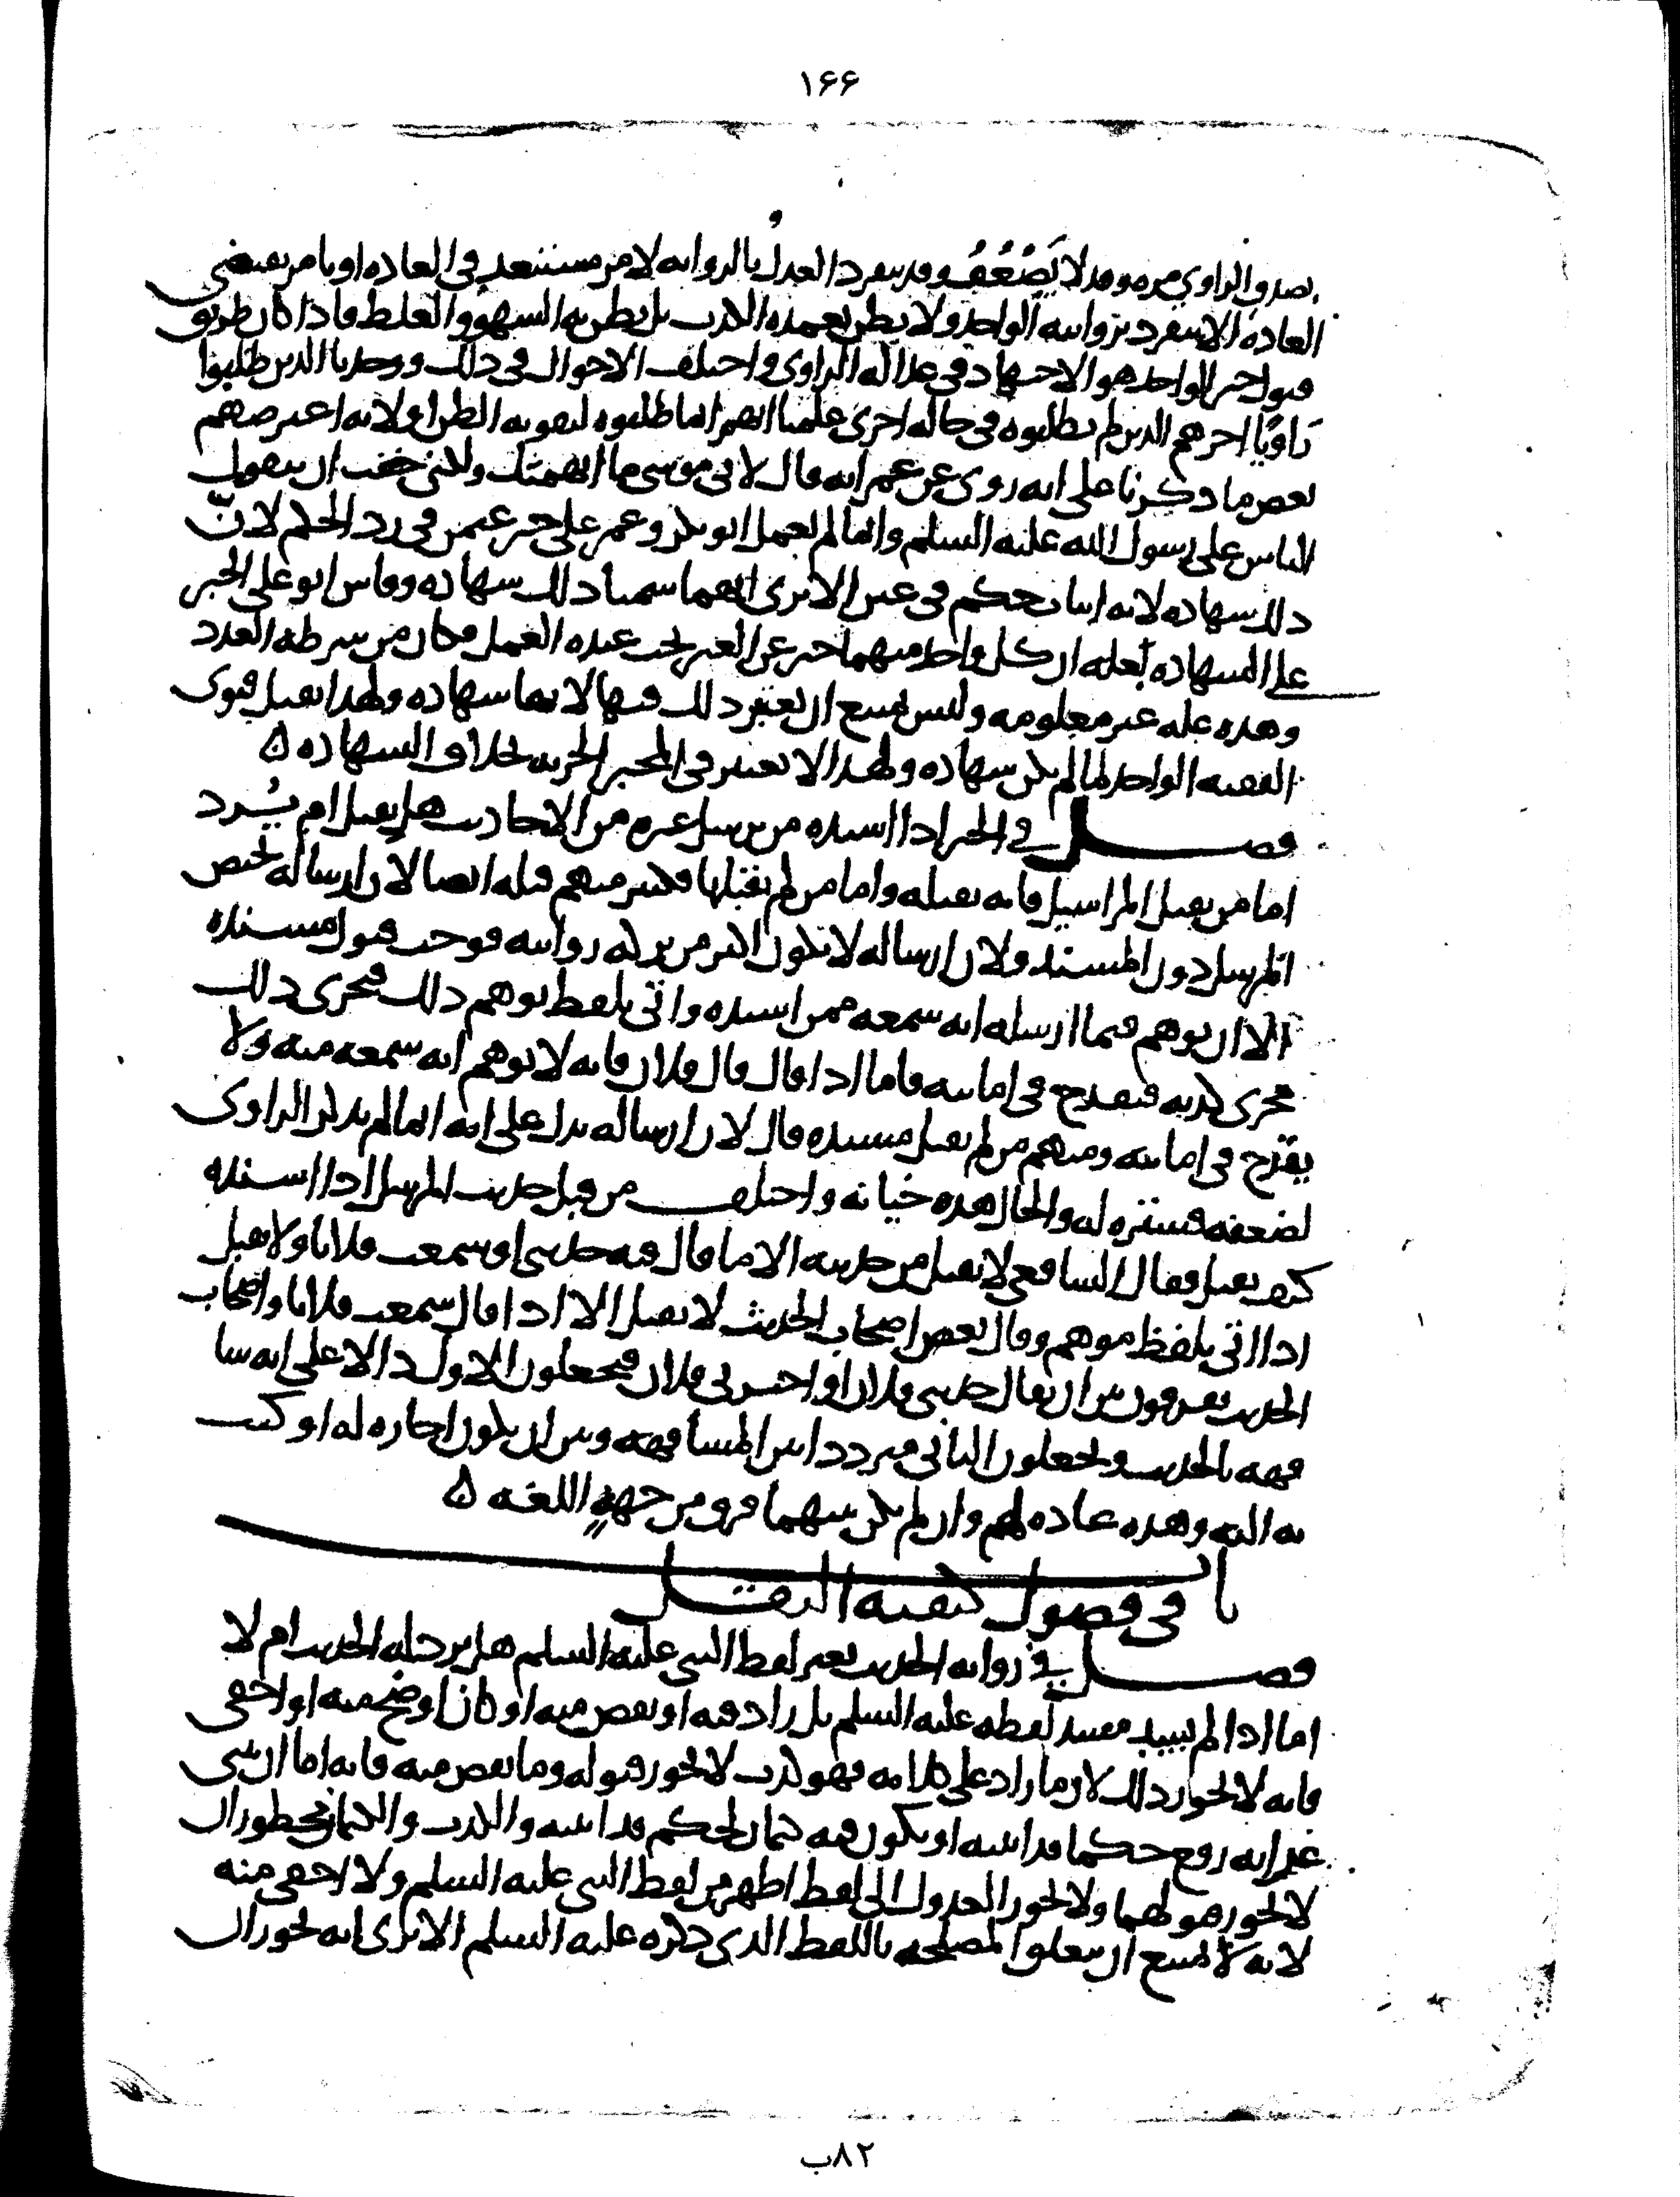 ١۶۶
بصدق الراوي مره وقد لا يَضْعُفُ وقد ينفرد العدل بالروايه لامر مستبعد في العاده او بامر يقتضي
العاده الا ينفرد بروايته الواحد ولا يظن تعمده الكذب بل يظن به السهو والغلط فاذا كان طريق
قبول خبر الواحد هو الاجتهاد في عداله الراوي واختلف الاحوال في ذلك ووجدنا الذين طلبوا
رَاويًا اخر هم الذين لم يطلبوه في حاله اخرى علمنا انهم انما طلبوه لتقويه الظن او لانه اعترضهم
بعض ما ذكرنا على انه روى عن عمر انه قال لابي موسى ما اتهمتك ولكني خفت ان يتقول
الناس على رسول الله عليه السلم وانما لم يعمل ابو بكر وعمر على خبر عثمن في رد الحكم لانّ
ذلك شهاده لانه اثبات حكم في عين الا ترى انهما سميا ذلك شهاده وقاس ابو على الخبر
على الشهاده بعله ان كل واحد منهما خبر عن الغير يجب عنده العمل فكان من شرطه العدد
وهذه عله غير معلومه وليس يمتنع ان يعتبر ذلك فيها لانها شهاده ولهذا يقبل فتوى
الفقيه الواحد لما لم يكن شهاده ولهذا لا يعتبر في المخبر الحريه بخلاف الشهاده ه
فصــل في الخبر اذا اسنده من يرسل غيره من الاحاديث هل يقبل ام يُـرد
اما من يقبل المراسيل فانه يقبله واما من لم يقبلها فكثير منهم قبله ايضا لان ارساله يختص
المرسل دون المسند ولان ارساله لا يكون اكثر من تركه روايته فوجب قبول مسنده
الا ان يوهم فيما ارسله انه سمعه ممن اسنده واتى بلفظ يوهم ذلك فيجرى ذلك
مجرى كذبه فيقدح في امانته فاما اذا قال قال فلان فانه لا يوهم انه سمعه منه ولا
يقدح في امانته ومنهم من لم يقبل مسنده قال لان ارساله يدل على انه انما لم يذكر الراوي
لضعفه فستره له والحال هذه خيانه واختلف من قبل حديث المرسل اذا اسنده
كيف يقبل فقال الشافعي لا يقبل من حديثه الا ما قال فيه حدثني او سمعت فلانا ولا يقبل
اذا اتى بلفظ موهم وقال بعض اصحاب الحديث لا يقبل الا اذا قال سمعت فلانا واصحاب
الحديث يفرقون بين ان يقال حدثني فلان او اخبرني فلان فيجعلون الاول دالا على انه شا
فهه بالحديث ويجعلون الثاني مترددا بين المشافهه وبين ان يكون اجازه له او كتب
به اليه وهذه عاده لهم وان لم يكن بينهما فرق من جهةِ اللغه ه
باب في فصول كيفيه النقــل
فصــل في روايه الحديث بغير لفظ النبي عليه السلم هل يرد خبله الحديث ام لا
اما اذا لم يسد مسد لفظه عليه السلم بل زاد فيه او نقص منه او كان اوضح منه او اخفى
فانه لا يجوز ذلك لان ما زاد على كلامه فهو كذب لا يجوز قبوله وما نقص منه فانه اما ان ينبي
عن انه رفع حكما قد اثبته او يكون فيه كتمان لحكم قد اثبته والكذب والكتمان محظوران
لا يجوز قبولهما ولا يجوز العدول الى لفظ اظهر من لفظ النبي عليه السلم ولا اخفى منه
لانه لا يمتنع ان يتعلق المصلحه باللفظ الذي ذكره عليه السلم الا ترى انه يجوز ان
٨٢ب